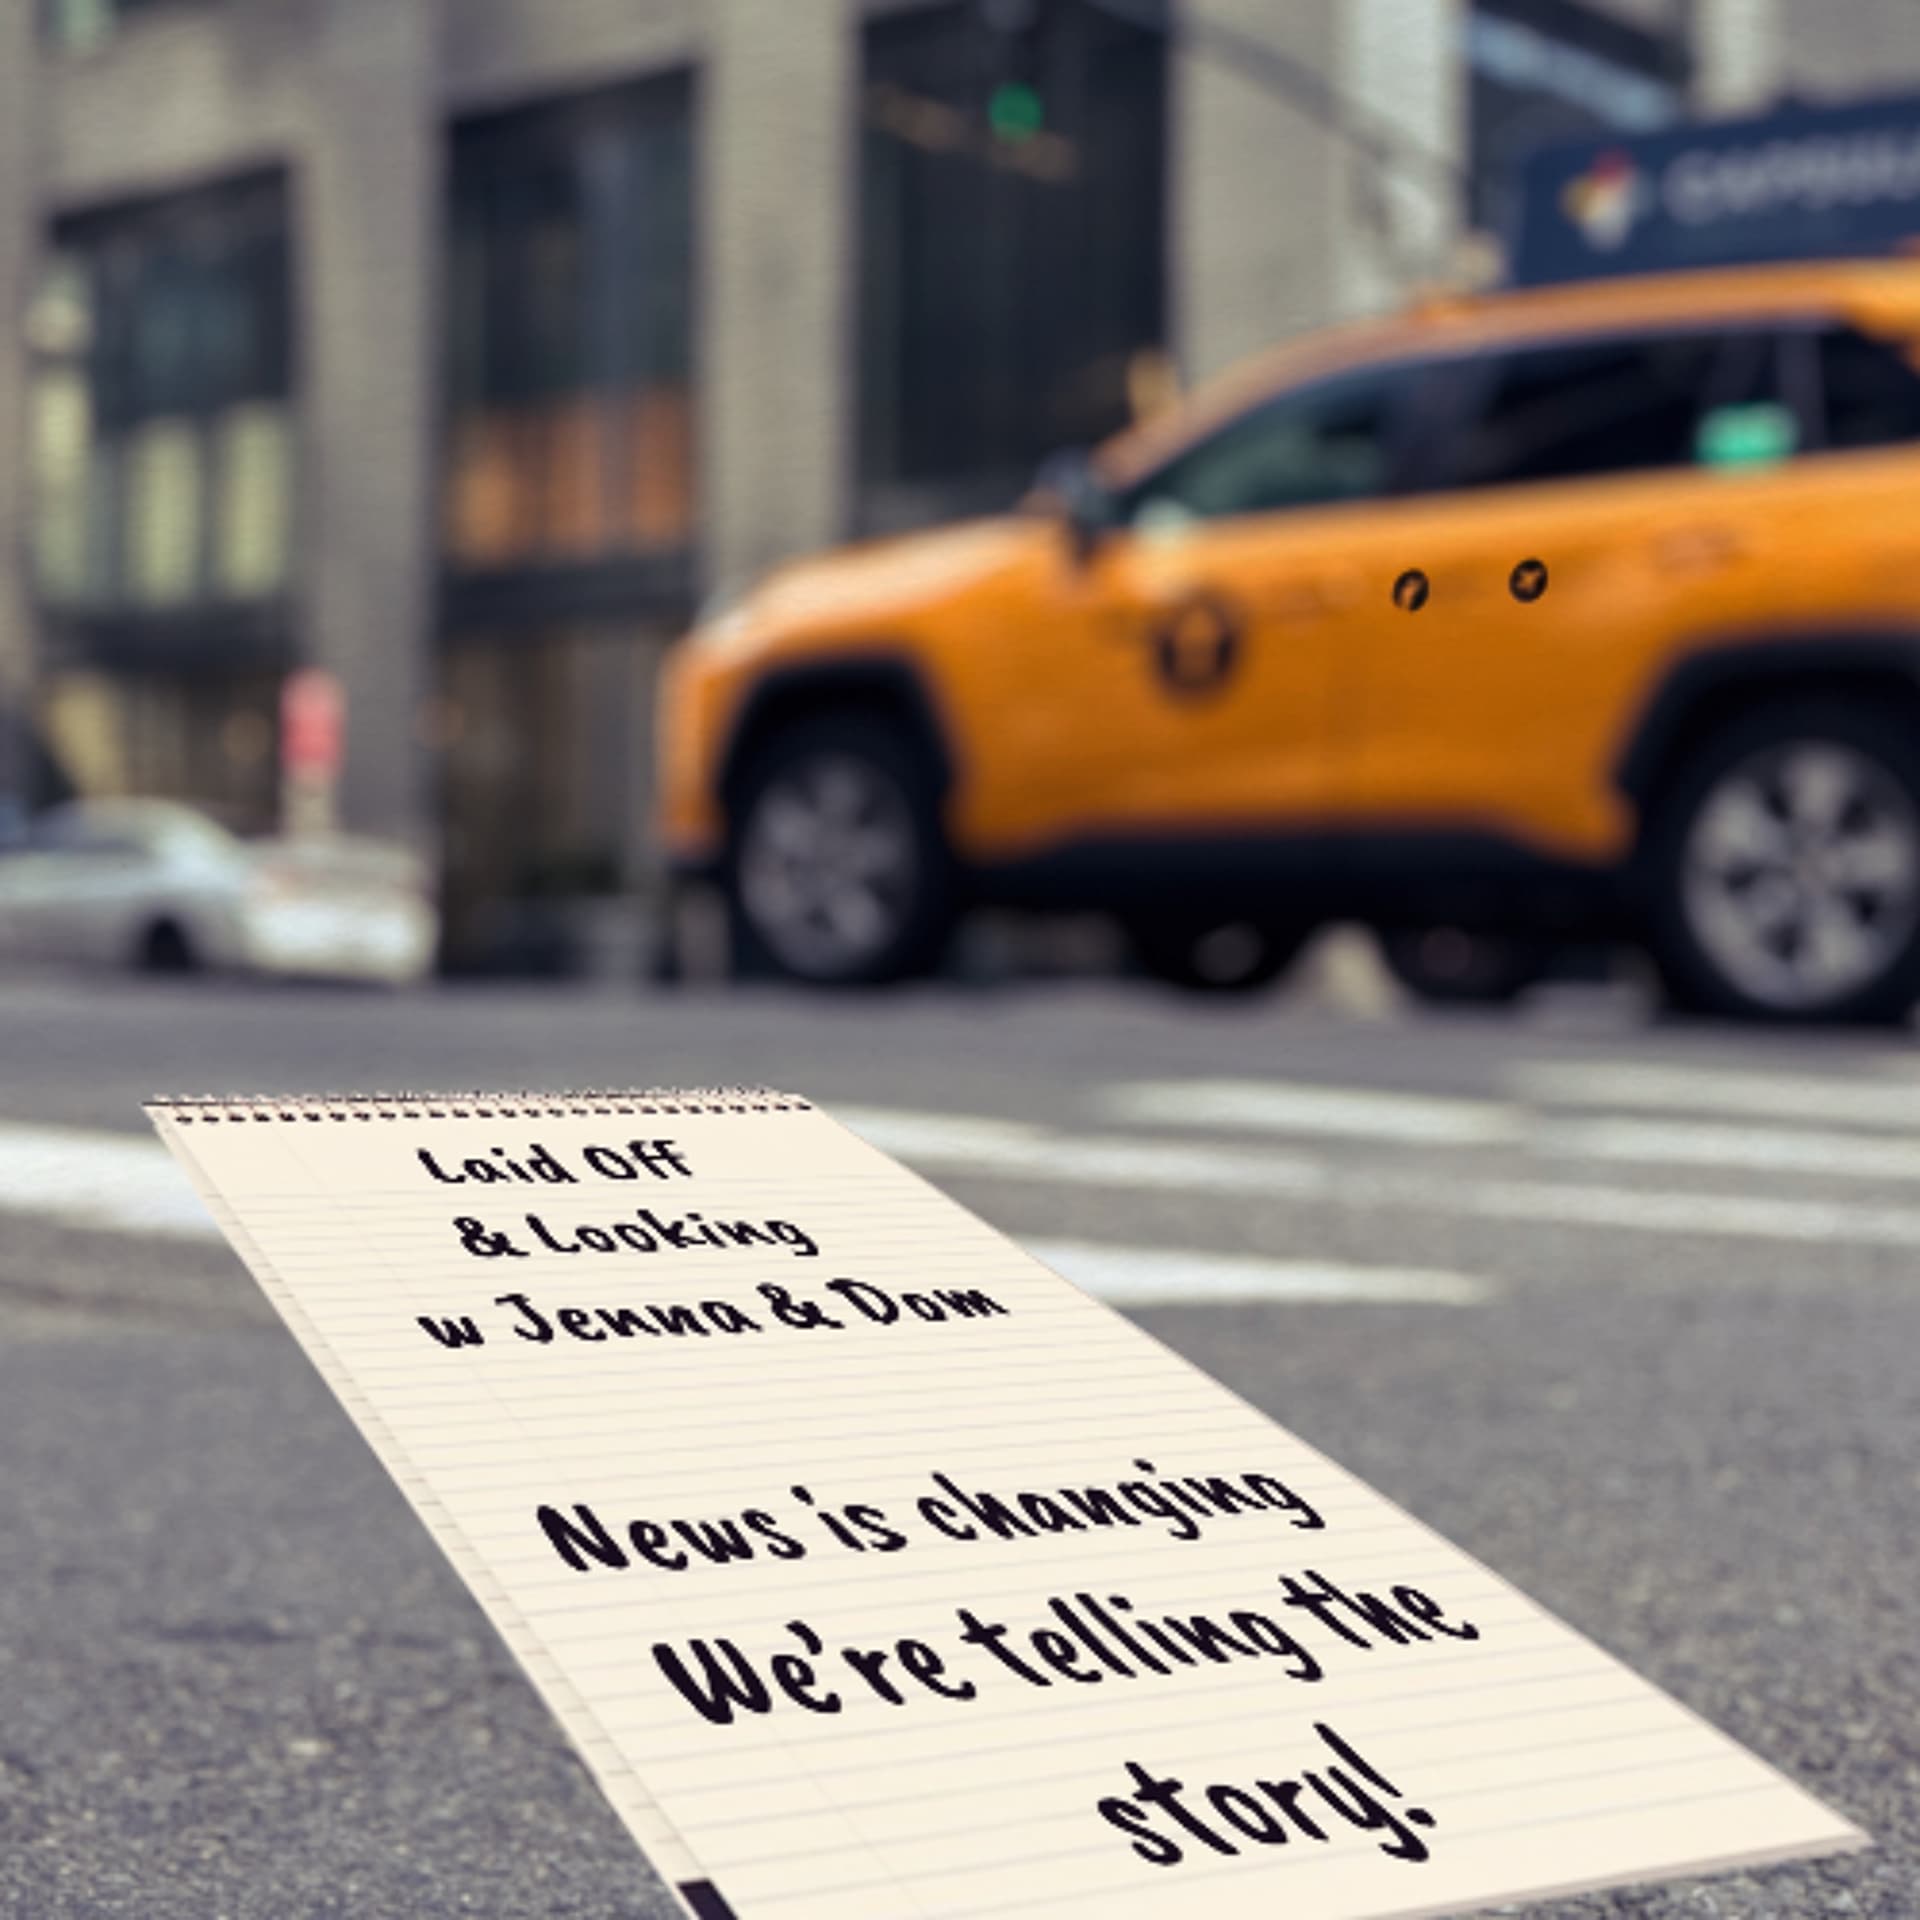 Laid Off
& Looking
w Jenna & Dom
News is changing
We're telling the
story!